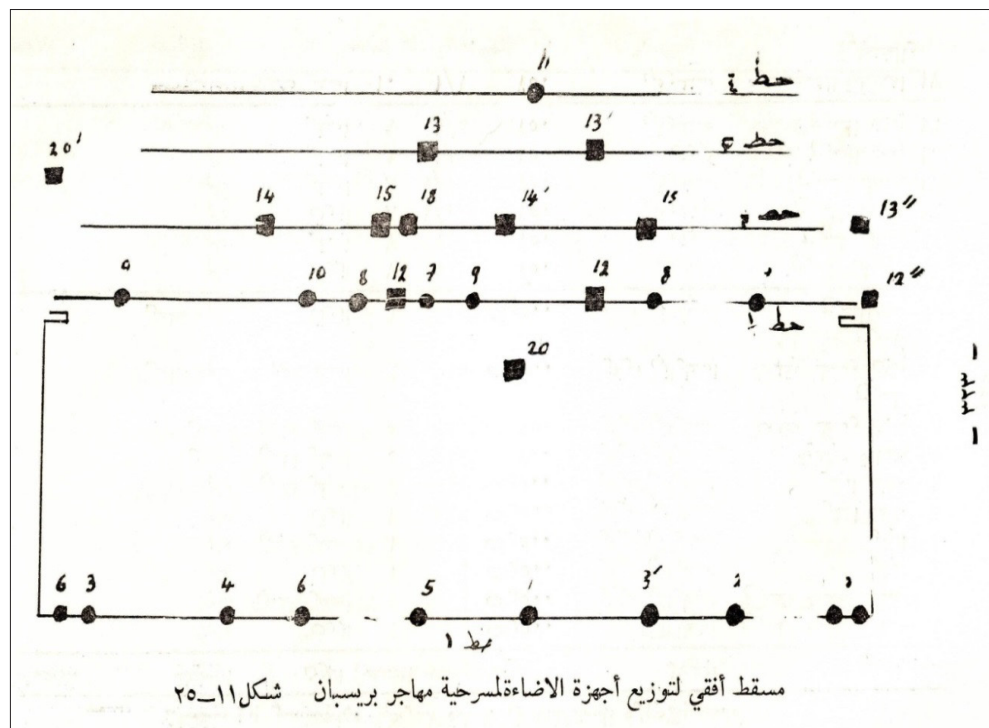 11 خط ٤
13 13' خط ٣
20'
14 15 18 14' 15 13"
9 10 8 12 7 9 12 8 12"
خط
20
— ٣٢٣ —
6 3 4 6 5 1 3' 2
خط ١
مسقط أفقي لتوزيع أجهزة الاضاءة لمسرحية مهاجر بريسبان شكل ١١–٢٥